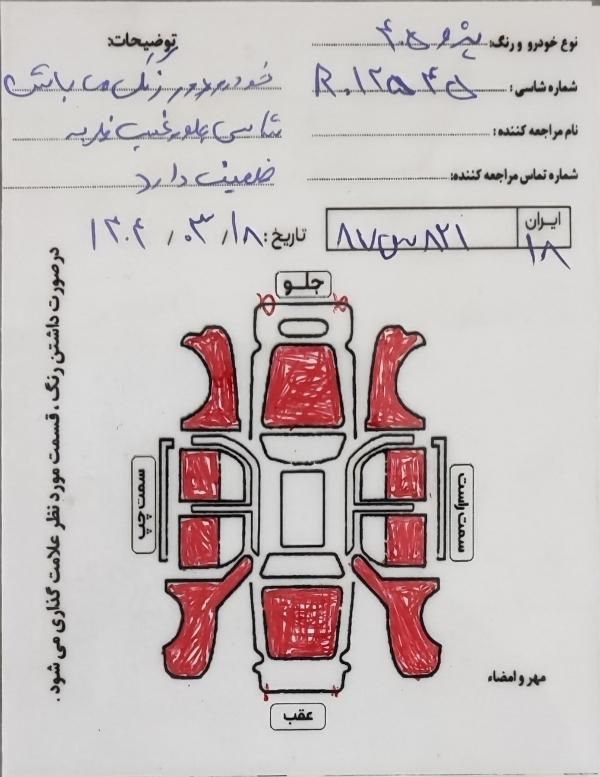 نوع خودرو و رنگ: پژو ۴۰۵
توضیحات:
شماره شاسی: R.۱۲۵۴۵
خودرو دور رنگ می باشد
نام مراجعه کننده:
شاسی جلو عقب ضربه
شماره تماس مراجعه کننده:
ضعیف دارد
ایران
۱۸
۸۷س۸۲۱
تاریخ: ۱۴۰۴/۰۳/۱۸
در صورت داشتن رنگ، قسمت مورد نظر علامت گذاری می شود.
جلو
سمت چپ
سمت راست
عقب
مهر و امضاء